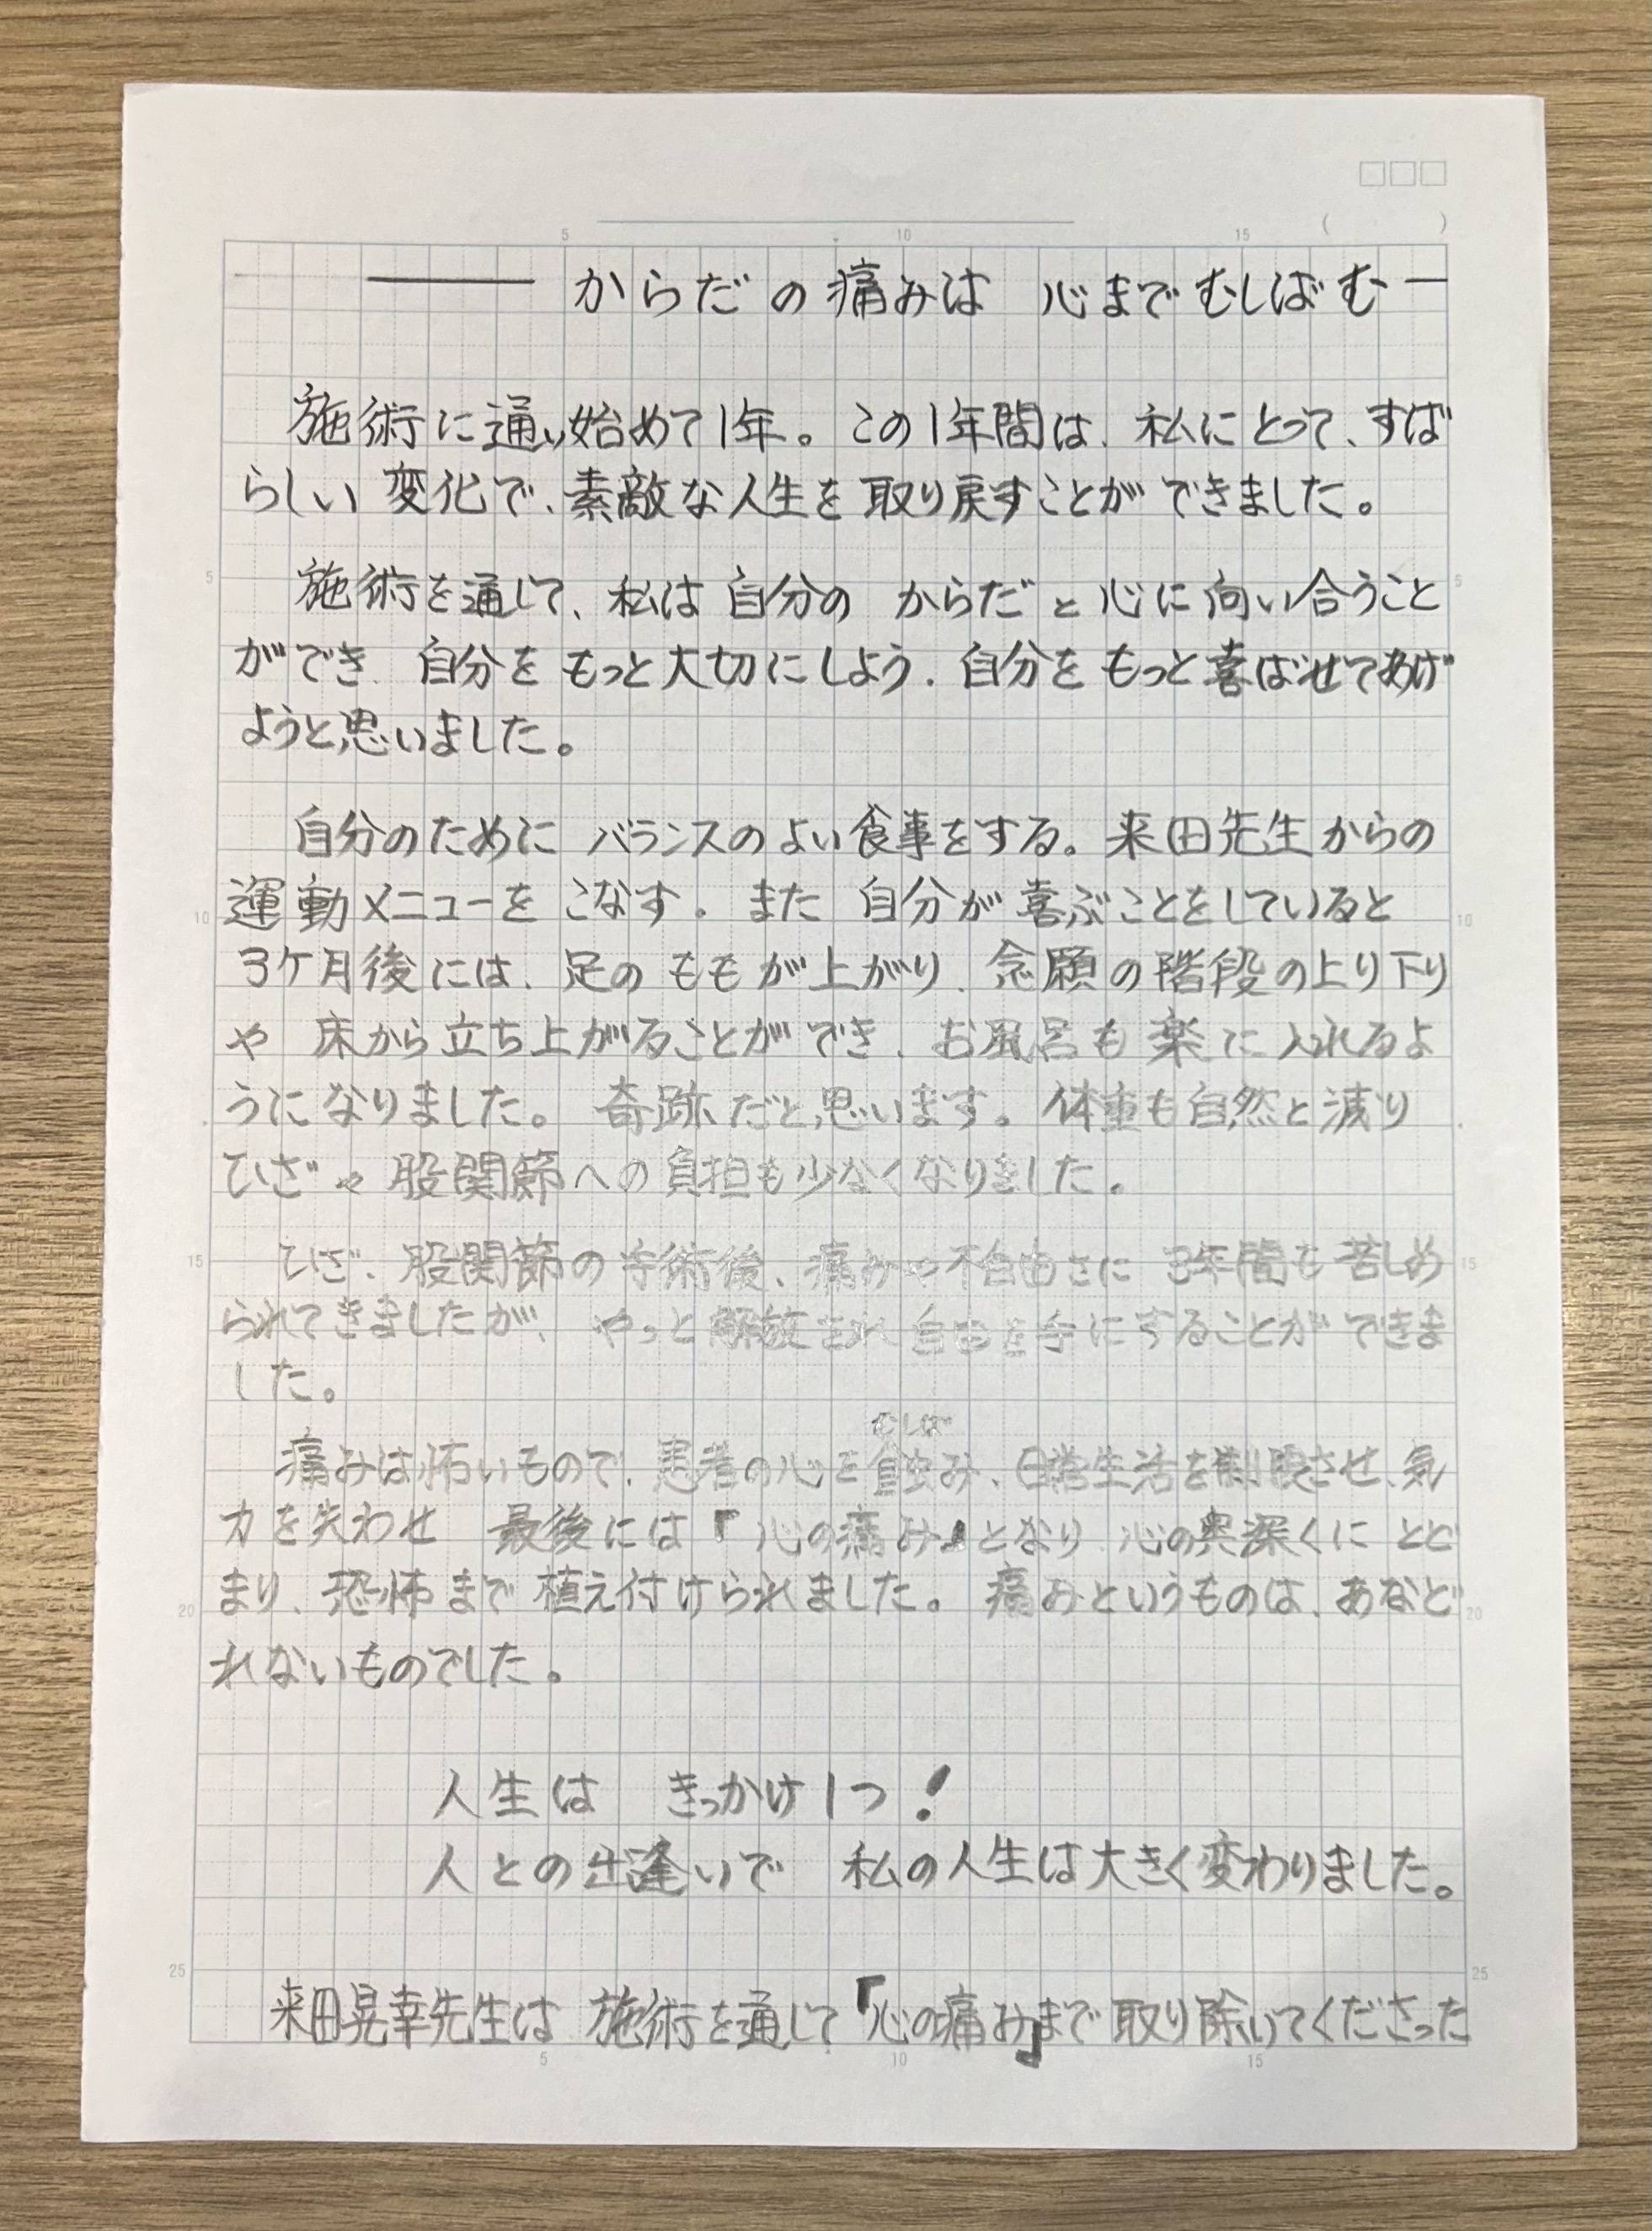 5 10 15 ( )
―― からだの痛みは 心までむしばむ ―
施術に通い始めて1年。この1年間は、私にとって、すば
らしい変化で、素敵な人生を取り戻すことができました。
5 施術を通じて、私は自分の からだと心に向い合うこと 5
ができ、自分をもっと大切にしよう、自分をもっと喜ばせてあげ
ようと思いました。
自分のために バランスのよい食事をする。来田先生からの
10 運動メニューを こなす。また 自分が喜ぶことをしていると 10
3ケ月後には、足のももが上がり、念願の階段の上り下り
や 床から立ち上がることができ、お風呂も楽に入れるよ
うになりました。 奇跡だと思います。体重も自然と減り
ひざや股関節への負担も少なくなりました。
15 ひざ、股関節の手術後、痛みや不自由さに 3年間も苦しめ 15
られてきましたが、 やっと解放され自由を手にすることができま
した。
むしば
痛みは怖いもので、患者の心を蝕み、日常生活を制限させ、気
力を失わせ 最後には『心の痛み』となり、心の奥深くに とど
20 まり、恐怖まで植え付けられました。痛みというものは、あなど 20
れないものでした。
人生は きっかけ1つ!
人との出逢いで 私の人生は大きく変わりました。
25 25
来田晃幸先生は 施術を通じて『心の痛み』まで取り除いてくださった
5 10 15